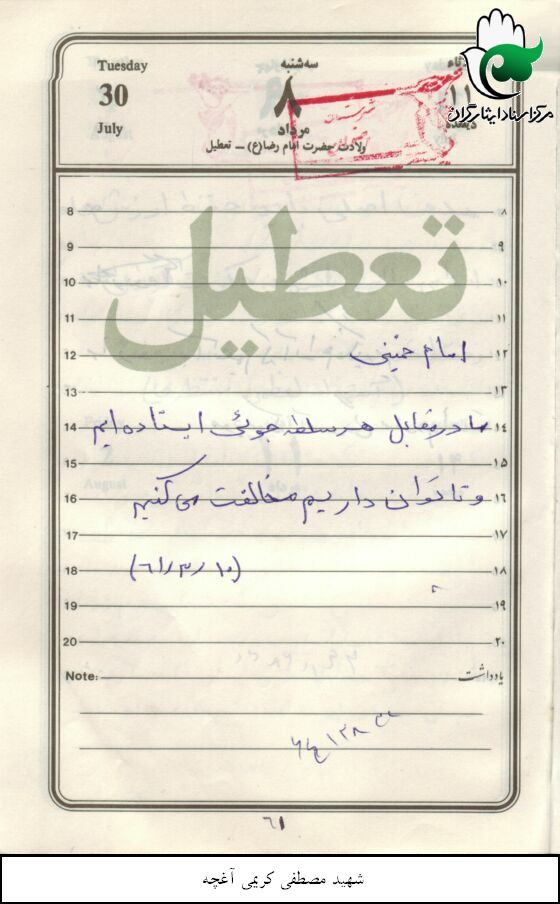 Tuesday
30
July
سه‌شنبه
۸
مرداد
ولادت حضرت امام رضا(ع) ــ تعطیل
۱۱
مرکز اسناد ایثارگران
تعطیل
8 ۸
9 ۹
10 ۱۰
11 ۱۱
امام خمینی
12 ۱۲
13 ۱۳
ما در مقابل هر سلطه جوئی ایستاده ایم
14 ۱۴
15 ۱۵
و تا توان داریم مخالفت می کنیم
16 ۱۶
17 ۱۷
(۱۰/۳/۶۱)
18 ۱۸
19 ۱۹
20 ۲۰
Note: یادداشت
۶۱
شهید مصطفی کریمی آغچه